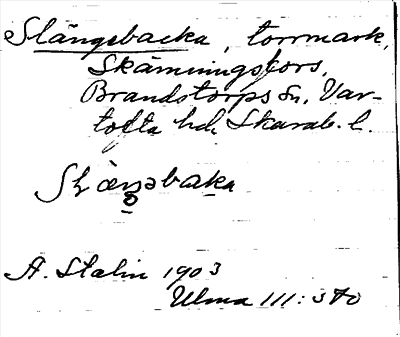 Slängsbacka, torrmark,
Skämningsfors,
Brandstorps sn, Var-
tofta hd, Skarab. l.
baka
A. Stalin 1903
Ulma 111:370